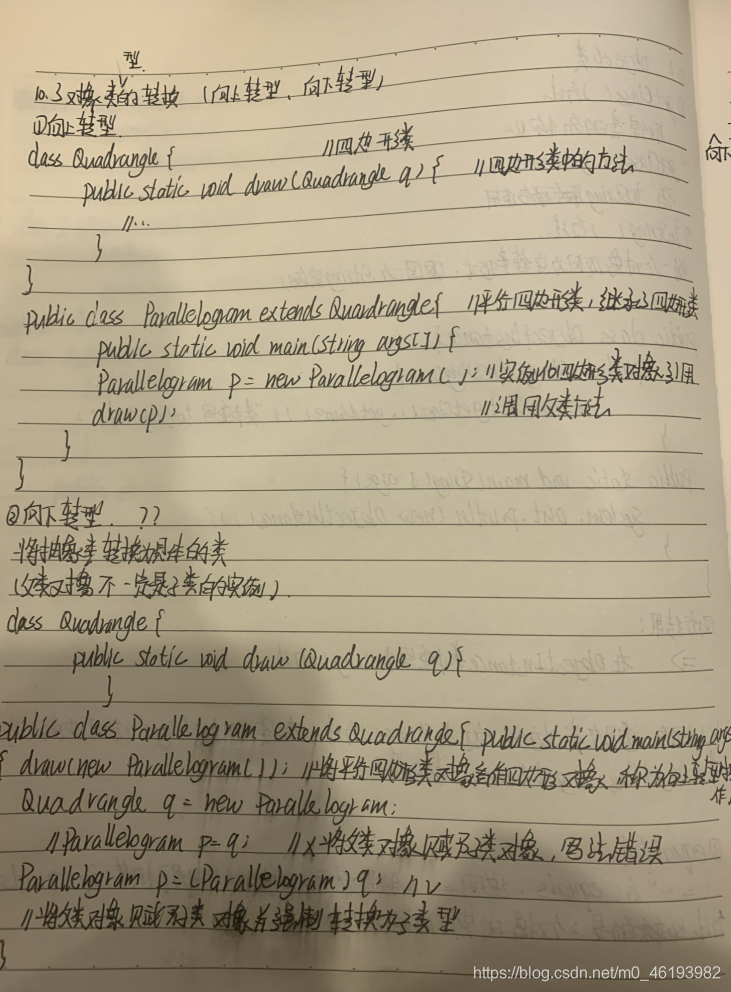 型
10.3对象类的转换 (向上转型、向下转型)
①向上转型.
class Quadrangle { //四边形类
public static void draw(Quadrangle q) { //四边形类中的方法
//...
}
}
public class Parallelogram extends Quadrangle{ //平行四边形类,继承了四边形类
public static void main(string args[]) {
Parallelogram p = new Parallelogram(); //实例化四边形类对象引用
draw(p); //调用父类方法
}
}
②向下转型. ??
将抽象类转换为具体的类
(父类对象不一定是子类的实例).
class Quadrangle {
public static void draw (Quadrangle q){
}
public class Parallelogram extends Quadrangle{ public static void main(string args
{ draw(new Parallelogram()); //将平行四边形类对象看作四边形对象,称为向上转型操
作.
Quadrangle q = new Parallelogram;
//Parallelogram p=q; //×将父类对象赋予子类对象,写法错误
Parallelogram p=(Parallelogram) q; //√
//将父类对象赋予子类对象并强制转换为子类型
}
向下
https://blog.csdn.net/m0_46193982